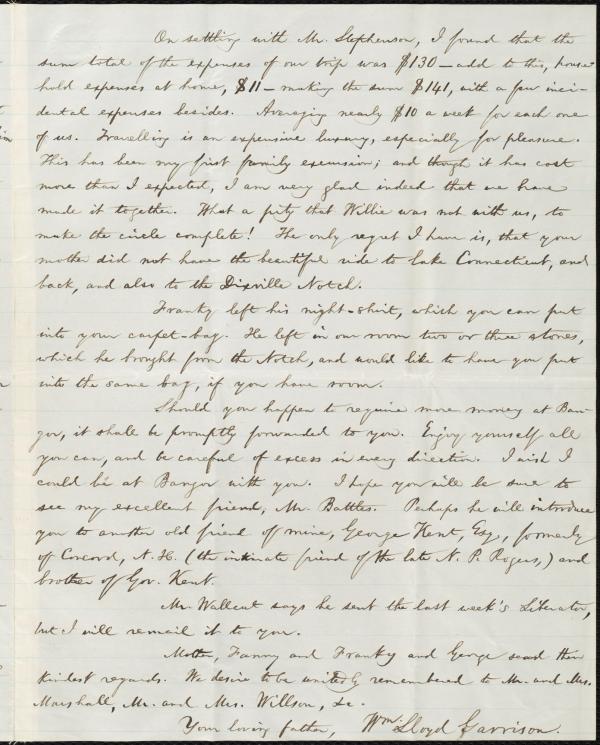 On settling with Mr. Stephenson, I found that the
sum total of the expenses of our trip was $130 — add to this, house-
hold expenses at home, $11 — making the sum $141, with a few inci-
dental expenses besides. Averaging nearly $10 a week for each one
of us. Travelling is an expensive luxury, especially for pleasure.
This has been my first family excursion; and though it has cost
more than I expected, I am very glad indeed that we have
made it together. What a pity that Willie was not with us, to
make the circle complete! The only regret I have is, that your
mother did not have the beautiful ride to lake Connecticut, and
back, and also to the Dixville Notch.
Franky left his night-shirt, which you can put
into your carpet-bag. He left in our room two or three stones,
which he brought from the Notch, and would like to have you put
into the same bag, if you have room.
Should you happen to require more money at Ban-
gor, it shall be promptly forwarded to you. Enjoy yourself all
you can, and be careful of excess in every direction. I wish I
could be at Bangor with you. I hope you will be sure to
see my excellent friend, Mr. Battles. Perhaps he will introduce
you to another old friend of mine, George Kent, Esq., formerly
of Concord, N. H. (the intimate friend of the late N. P. Rogers,) and
brother of Gov. Kent.
Mr. Wallcut says he sent the last week's Liberator,
but I will remail it to you.
Mother, Fanny and Franky and George send their
kindest regards. We desire to be unitedly remembered to Mr. and Mrs.
Marshall, Mr. and Mrs. Willson, &c.
Your loving father, Wm. Lloyd Garrison.